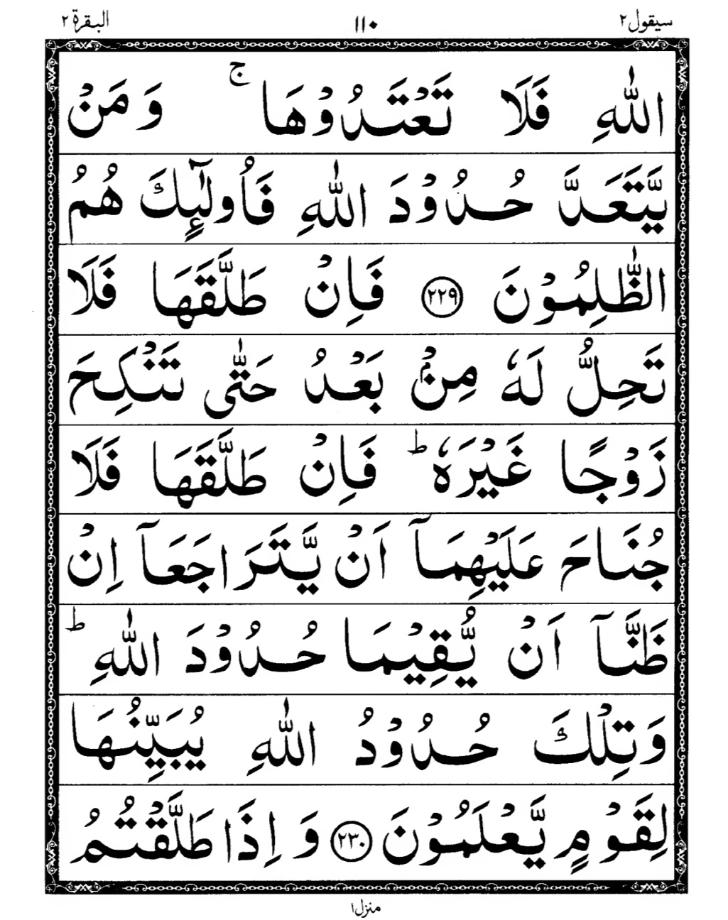 سيقول٢ ١١٠ البقرة ٢
اللّٰهِ فَلَا تَعْتَدُوْهَا ۚ وَ مَنْ
يَّتَعَدَّ حُدُوْدَ اللّٰهِ فَاُولٰٓىِٕكَ هُمُ
الظّٰلِمُوْنَ ﴿٢٢٩﴾ فَاِنْ طَلَّقَهَا فَلَا
تَحِلُّ لَهٗ مِنْۢ بَعْدُ حَتّٰى تَنْكِحَ
زَوْجًا غَيْرَهٗ ؕ فَاِنْ طَلَّقَهَا فَلَا
جُنَاحَ عَلَيْهِمَاۤ اَنْ يَّتَرَاجَعَاۤ اِنْ
ظَنَّاۤ اَنْ يُّقِيْمَا حُدُوْدَ اللّٰهِ ؕ
وَتِلْكَ حُدُوْدُ اللّٰهِ يُبَيِّنُهَا
لِقَوْمٍ يَّعْلَمُوْنَ ﴿٢٣٠﴾ وَ اِذَا طَلَّقْتُمُ
منزل١